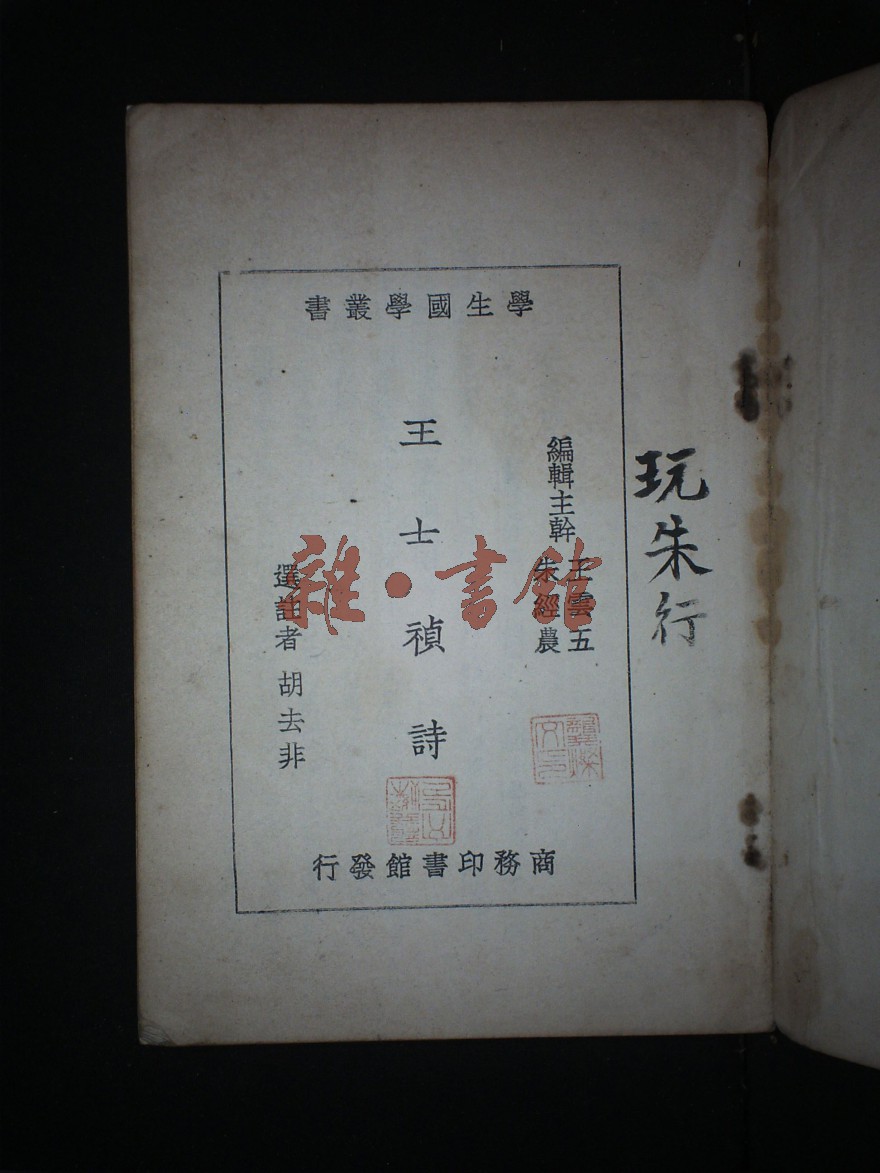 學生國學叢書
玩朱行
編輯主幹
王雲五
朱經農
王士禎詩
選註者 胡去非
商務印書館發行
雜·書館